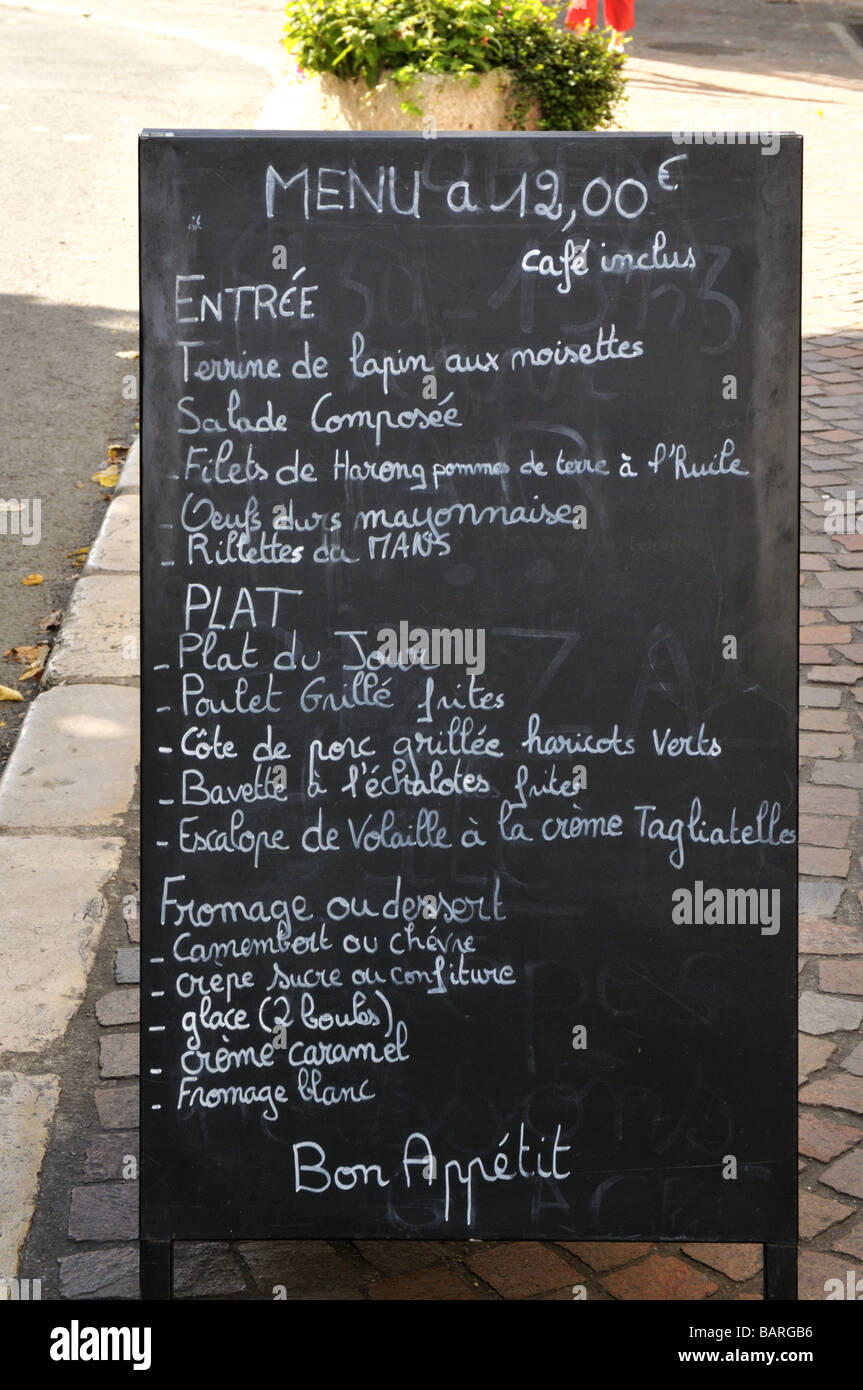 MENU a 12,00€
café inclus
ENTRÉE
Terrine de lapin aux noisettes
Salade Composée
- Filets de Harong pommes de terre à l'huile
- Oeufs durs mayonnaise
- Rillettes du MANS
PLAT
- Plat du Jour
- Poulet Grillé frites
- Côte de porc grillée haricots Verts
- Bavette à l'échalotes frites
- Escalope de Volaille à la crème Tagliatelles
Fromage ou dessert
- Camembert ou chévre
- crèpe sucre ou confiture
- glace (2 boules)
- crème caramel
- Fromage blanc
Bon Appétit
alamy
Image ID: BARGB6
www.alamy.com